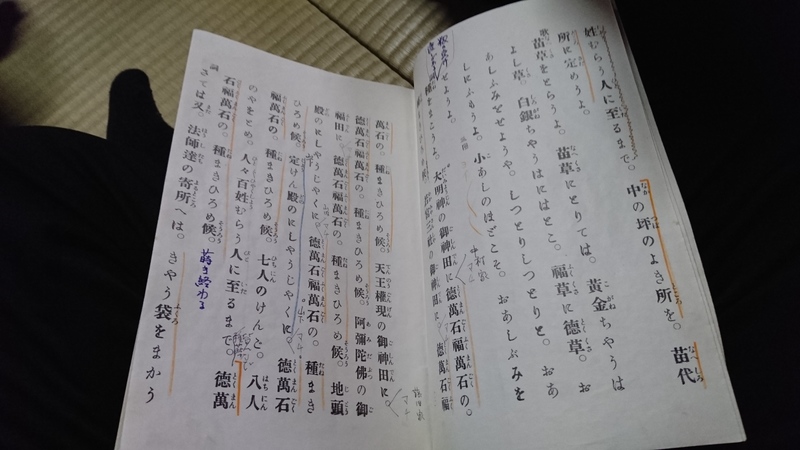 姓むらう人に至るまで。中の坪のよき所を。苗代
所に定めうよ。
歌 苗草をとらうよ。苗草にとりては。黄金ちやうは
よし草。白銀ちやうはにはとこ。福草に德草。お
あしふみをせようや。しつとりしつとりと。おあ
しにふもうよ。小あしのほどこそ。おあしぶみを
せようよ。
中村家
種をまこうよ。大明神の御神田に德萬石福萬石の。
の御神田に。德萬石福
萬石の。種まきひろめ候。天王權現の御神田に。
德萬石福萬石の。種まきひろめ候。阿彌陀佛の御
福田に。德萬石福萬石の。種まきひろめ候。地頭
殿のにしやうじやくに。德萬石福萬石の。種まき
ひろめ候。定けん殿のにしやうじやくに。德萬石
福萬石の。種まきひろめ候。七人のけんと。八人
のやをとめ。人々百姓むらう人に至るまで。德萬
石福萬石の。種まきひろめ候。蒔き終わる
詞
さては又。法師達の寄所へは。きやう袋をまかう